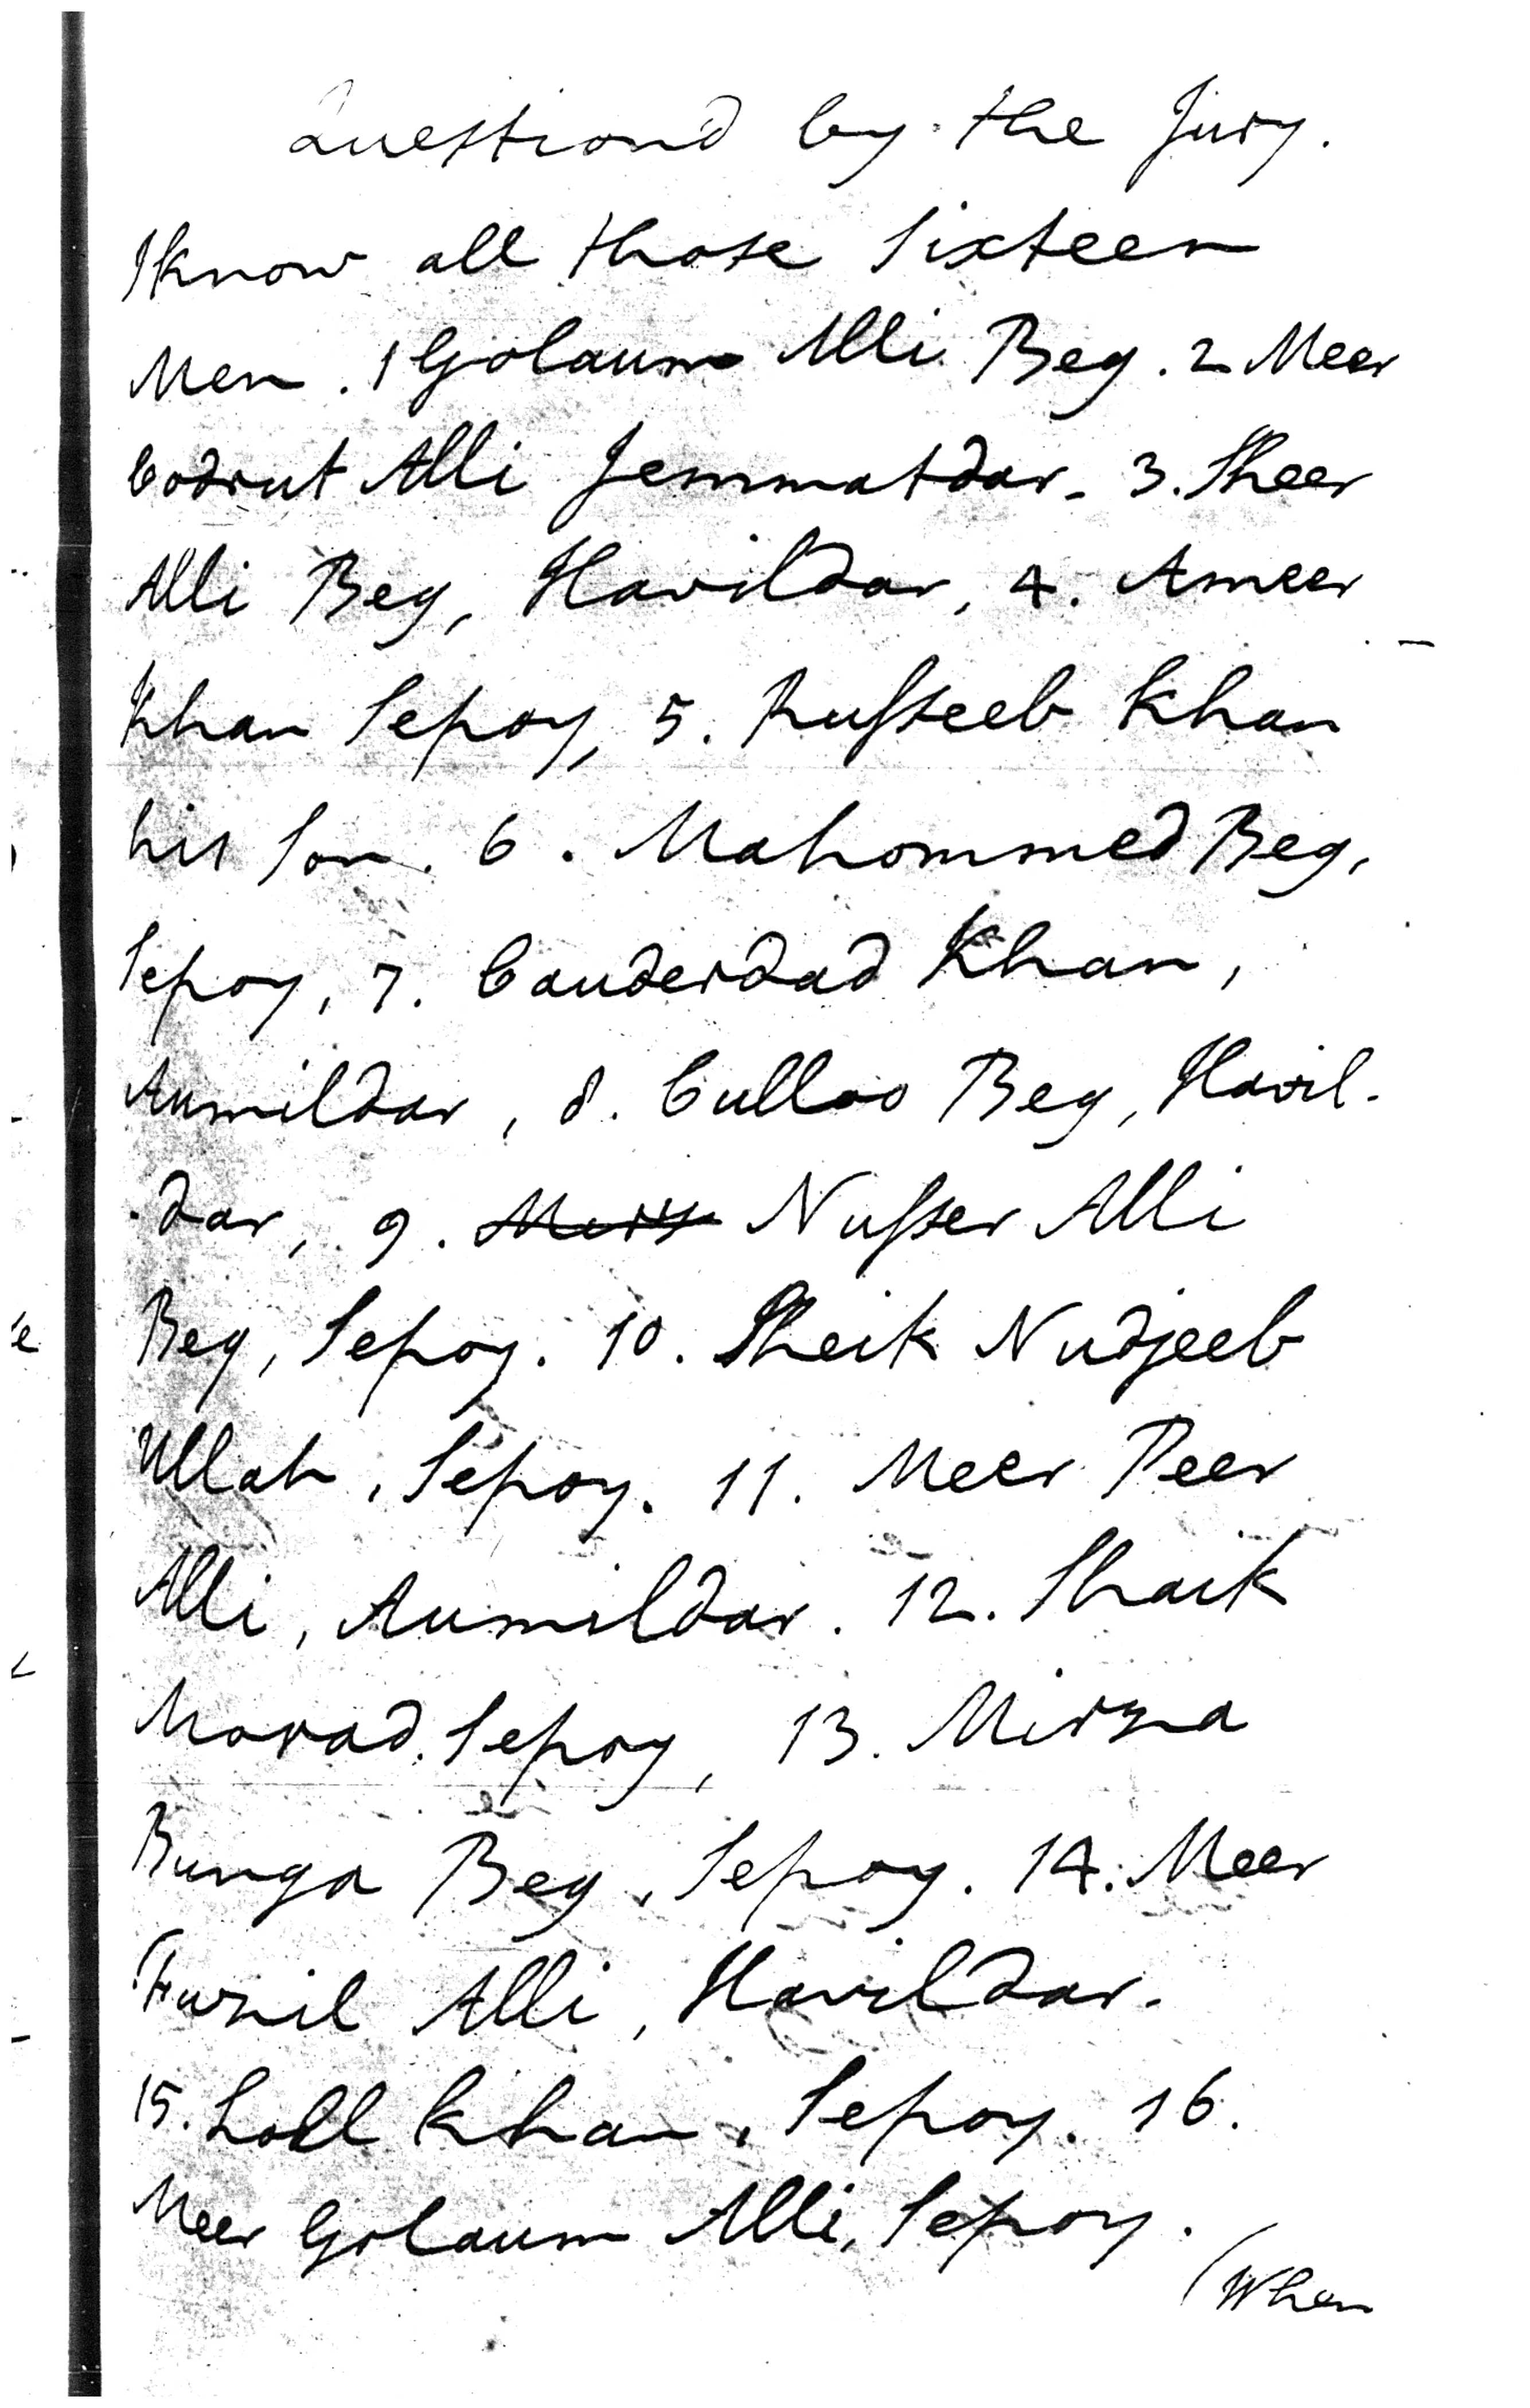 Questiond by the Jury.
I know all those Sixteen
Men. 1 Golaum Alli Beg. 2 Meer
Codrut Alli Jemmatdar. 3. Sheer
Alli Beg, Havildar, 4. Ameer
Khan Sepoy, 5. Russeeb Khan
his Son. 6. Mahommed Beg,
Sepoy, 7. Cauderdad Khan,
Aumildar, 8. Culloo Beg, Havil-
-dar, 9. Nusser Alli
Beg, Sepoy. 10. Sheik Nudjeeb
Ullah, Sepoy. 11. Meer Peer
Alli, Aumildar. 12. Shaik
Morad, Sepoy, 13. Mirza
Runga Beg, Sepoy. 14. Meer
Fuzil Alli, Havildar.
15. Loll Khan, Sepoy. 16.
Meer Golaum Alli, Sepoy.
(When